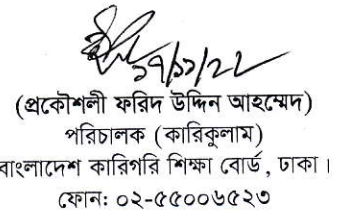 ১৭/১১/২২
(প্রকৌশলী ফরিদ উদ্দিন আহম্মেদ)
পরিচালক (কারিকুলাম)
বাংলাদেশ কারিগরি শিক্ষা বোর্ড, ঢাকা।
ফোন: ০২-৫৫০০৬৫২৩